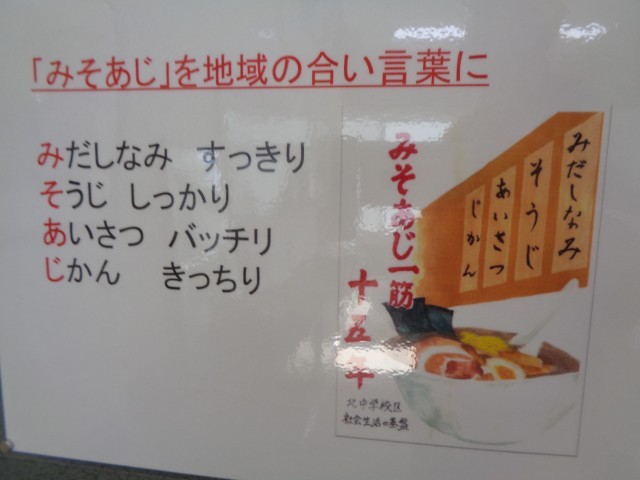 「みそあじ」を地域の合い言葉に
みだしなみ すっきり
そうじ しっかり
あいさつ バッチリ
じかん きっちり
みそあじ一筋
十五年
みだしなみ
そうじ
あいさつ
じかん
北中学校区
社会生活の基盤